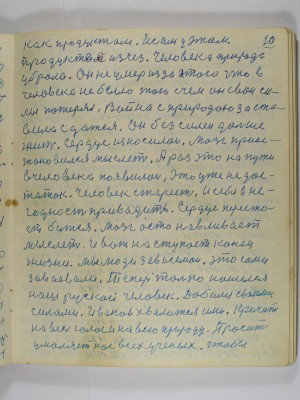 10
как продуктом. И сам этим
продуктом изчез. Человека природа
убрала. Он не умер из за этого что в
человека не было того с чем он свои си-
лы потерял. Война с природою заста-
вила сдатся. Он без силен дальше
жит. Сердце износилось. Мозг приос-
тановился мыслет. А раз это на пути
в человека появилос, это уже не дос-
таток. Человек стареет. И себя в не-
годност приводить. Сердце
бится. Мозг останавливает
мыслет. И вот наступает конец
жизни. Мы люди завоевали. Это сами
завоевали. Тепер толко нашелся
наш руской человек. Добился своими
силами. Иванов хвалится ими. Кричит
на весь голос и на всю природу. Просит
умоляет нас всех ученых. чтобы